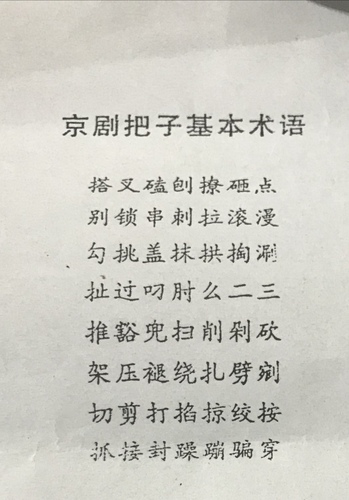 京剧把子基本术语
搭叉磕刨撩砸点
别锁串刺拉滚漫
勾挑盖抹拱掏涮
扯过叼肘么二三
推豁兜扫削剁砍
架压褪绕扎劈剜
切剪打掐掠绞按
抓接封躁蹦骗穿